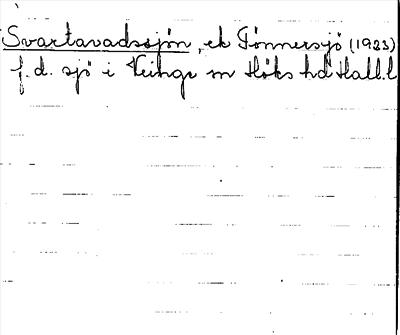 Svartavadssjön, ek Tönnersjö (1923)
f.d. sjö i Veinge sn Höks hd Hall.l